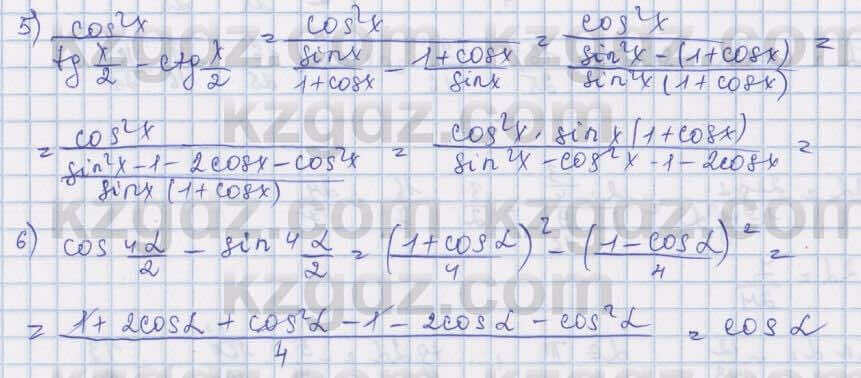 5) cos²x / (tg x/2 − ctg x/2) = cos²x / (sinx/(1+cosx) − (1+cosx)/sinx) = cos²x / ((sin²x − (1+cosx))/(sin²x(1+cosx))) =
= cos²x / ((sin²x − 1 − 2cosx − cos²x)/(sinx(1+cosx))) = cos²x · sinx(1+cosx) / (sin²x − cos²x − 1 − 2cosx) =
6) cos 4α/2 − sin 4α/2 = ((1+cosα)/4)² − ((1−cosα)/4)² =
= (1 + 2cosα + cos²α − 1 − 2cosα − cos²α)/4 = cosα
kzgdz.com